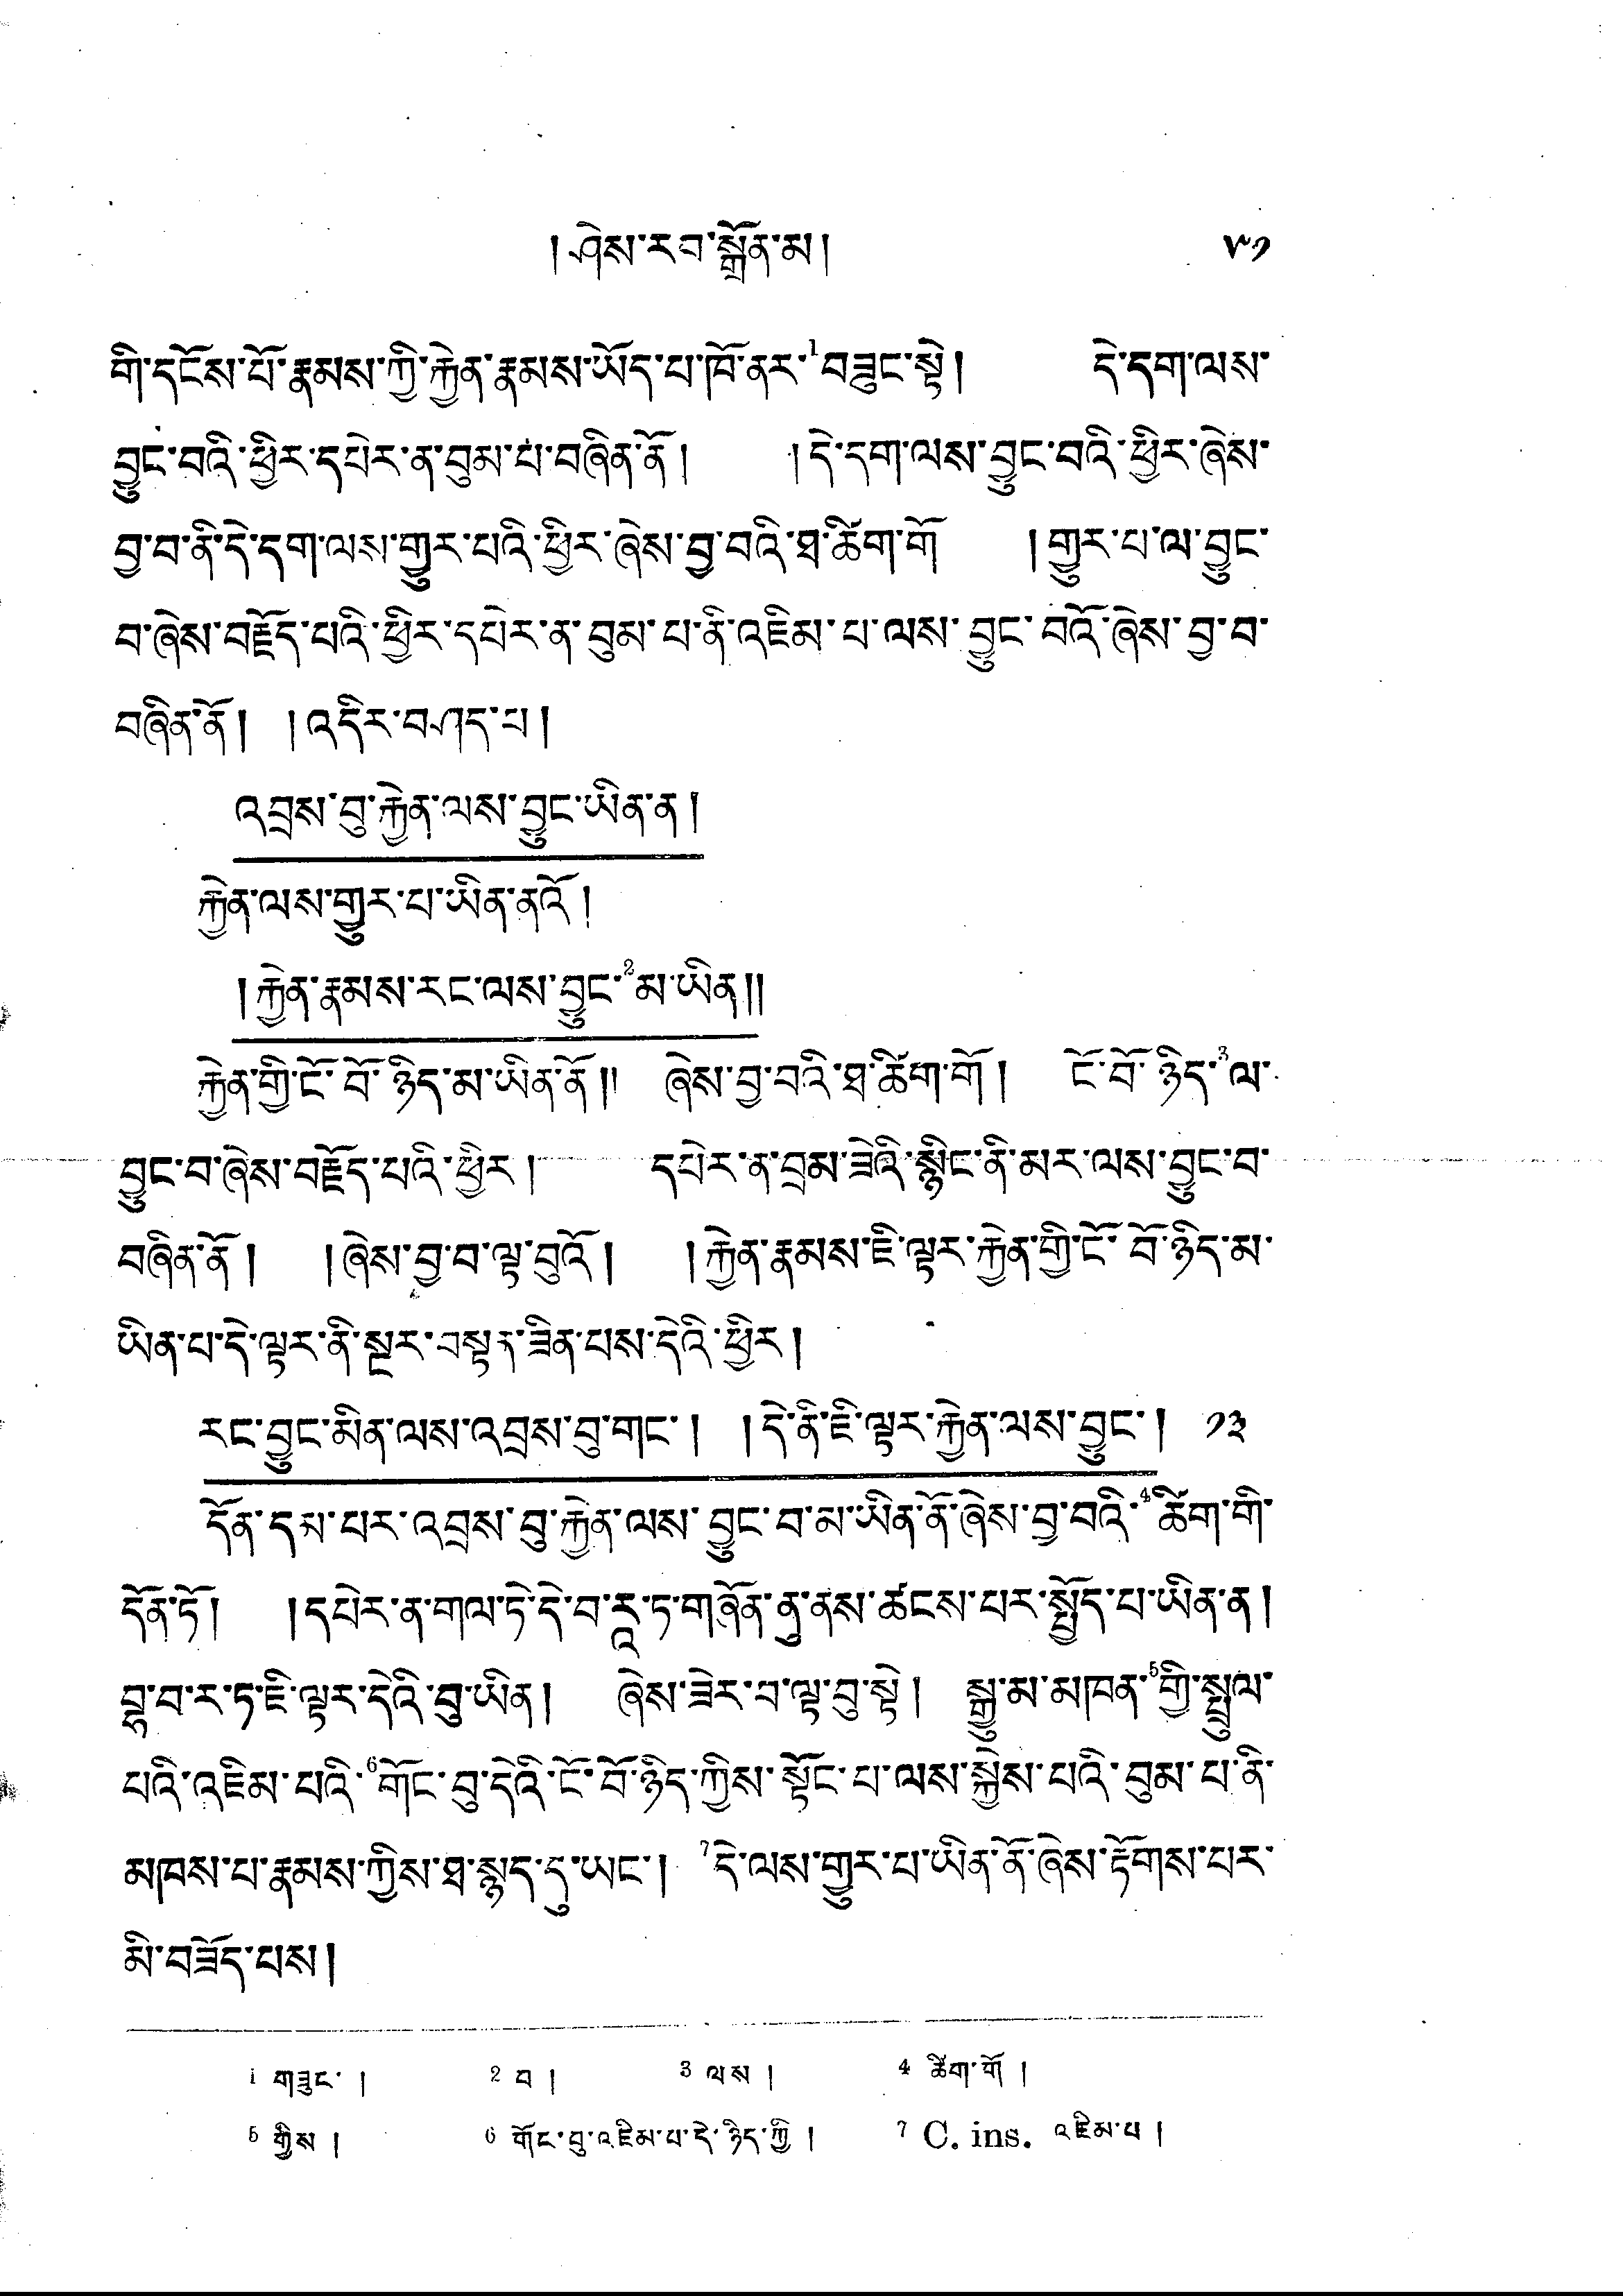 ། ཤེས་རབ་སྒྲོན་མ། ༥༡
གི་དངོས་པོ་རྣམས་ཀྱི་རྐྱེན་རྣམས་ཡོད་པ་ཁོ་ནར་¹བཟུང་སྟེ། དེ་དག་ལས་
བྱུང་བའི་ཕྱིར་དཔེར་ན་བུམ་པ་བཞིན་ནོ། །དེ་དག་ལས་བྱུང་བའི་ཕྱིར་ཞེས་
བྱ་བ་ནི་དེ་དག་ལས་གྱུར་པའི་ཕྱིར་ཞེས་བྱ་བའི་ཐ་ཚིག་གོ །གྱུར་པ་ལ་བྱུང་
བ་ཞེས་བརྗོད་པའི་ཕྱིར་དཔེར་ན་བུམ་པ་ནི་འཇིམ་པ་ལས་བྱུང་བའོ་ཞེས་བྱ་བ་
བཞིན་ནོ། །འདིར་བཤད་པ།
འབྲས་བུ་རྐྱེན་ལས་བྱུང་ཡིན་ན།
རྐྱེན་ལས་གྱུར་པ་ཡིན་ནའོ།
།རྐྱེན་རྣམས་རང་ལས་བྱུང་²མ་ཡིན།།
རྐྱེན་གྱི་ངོ་བོ་ཉིད་མ་ཡིན་ནོ།། ཞེས་བྱ་བའི་ཐ་ཚིག་གོ། ངོ་བོ་ཉིད་³ལ་
བྱུང་བ་ཞེས་བརྗོད་པའི་ཕྱིར། དཔེར་ན་བྲམ་ཟེའི་སྙིང་ནི་མར་ལས་བྱུང་བ་
བཞིན་ནོ། །ཞེས་བྱ་བ་ལྟ་བུའོ། །རྐྱེན་རྣམས་ཇི་ལྟར་རྐྱེན་གྱི་ངོ་བོ་ཉིད་མ་
ཡིན་པ་དེ་ལྟར་ནི་སྔར་བསྟན་ཟིན་པས་དེའི་ཕྱིར།
རང་བྱུང་མིན་ལས་འབྲས་བུ་གང་། །དེ་ནི་ཇི་ལྟར་རྐྱེན་ལས་བྱུང་། ༡༣
དོན་དམ་པར་འབྲས་བུ་རྐྱེན་ལས་བྱུང་བ་མ་ཡིན་ནོ་ཞེས་བྱ་བའི་⁴ཚིག་གི་
དོན་ཏོ། །དཔེར་ན་གལ་ཏེ་དེ་བ་དཱ་ཏ་གཞོན་ནུ་ནས་ཚངས་པར་སྤྱོད་པ་ཡིན་ན།
བྷ་བ་ར་ཏ་ཇི་ལྟར་དེའི་བུ་ཡིན། ཞེས་ཟེར་བ་ལྟ་བུ་སྟེ། སྒྱུ་མ་མཁན་⁵གྱི་སྤྲུལ་
པའི་འཇིམ་པའི་⁶གོང་བུ་དེའི་ངོ་བོ་ཉིད་ཀྱིས་སྟོང་པ་ལས་སྐྱེས་པའི་བུམ་པ་ནི་
མཁས་པ་རྣམས་ཀྱིས་ཐ་སྙད་དུ་ཡང་། ⁷དེ་ལས་གྱུར་པ་ཡིན་ནོ་ཞེས་རྟོགས་པར་
མི་བཟོད་པས།
1 གཟུང་ ། 2 བ ། 3 ལས ། 4 ཚིག་གོ །
5 གྱིས ། 6 གོང་བུ་འཇིམ་པ་དེ་ཉིད་ཀྱི ། 7 C. ins. འཇིམ་པ །